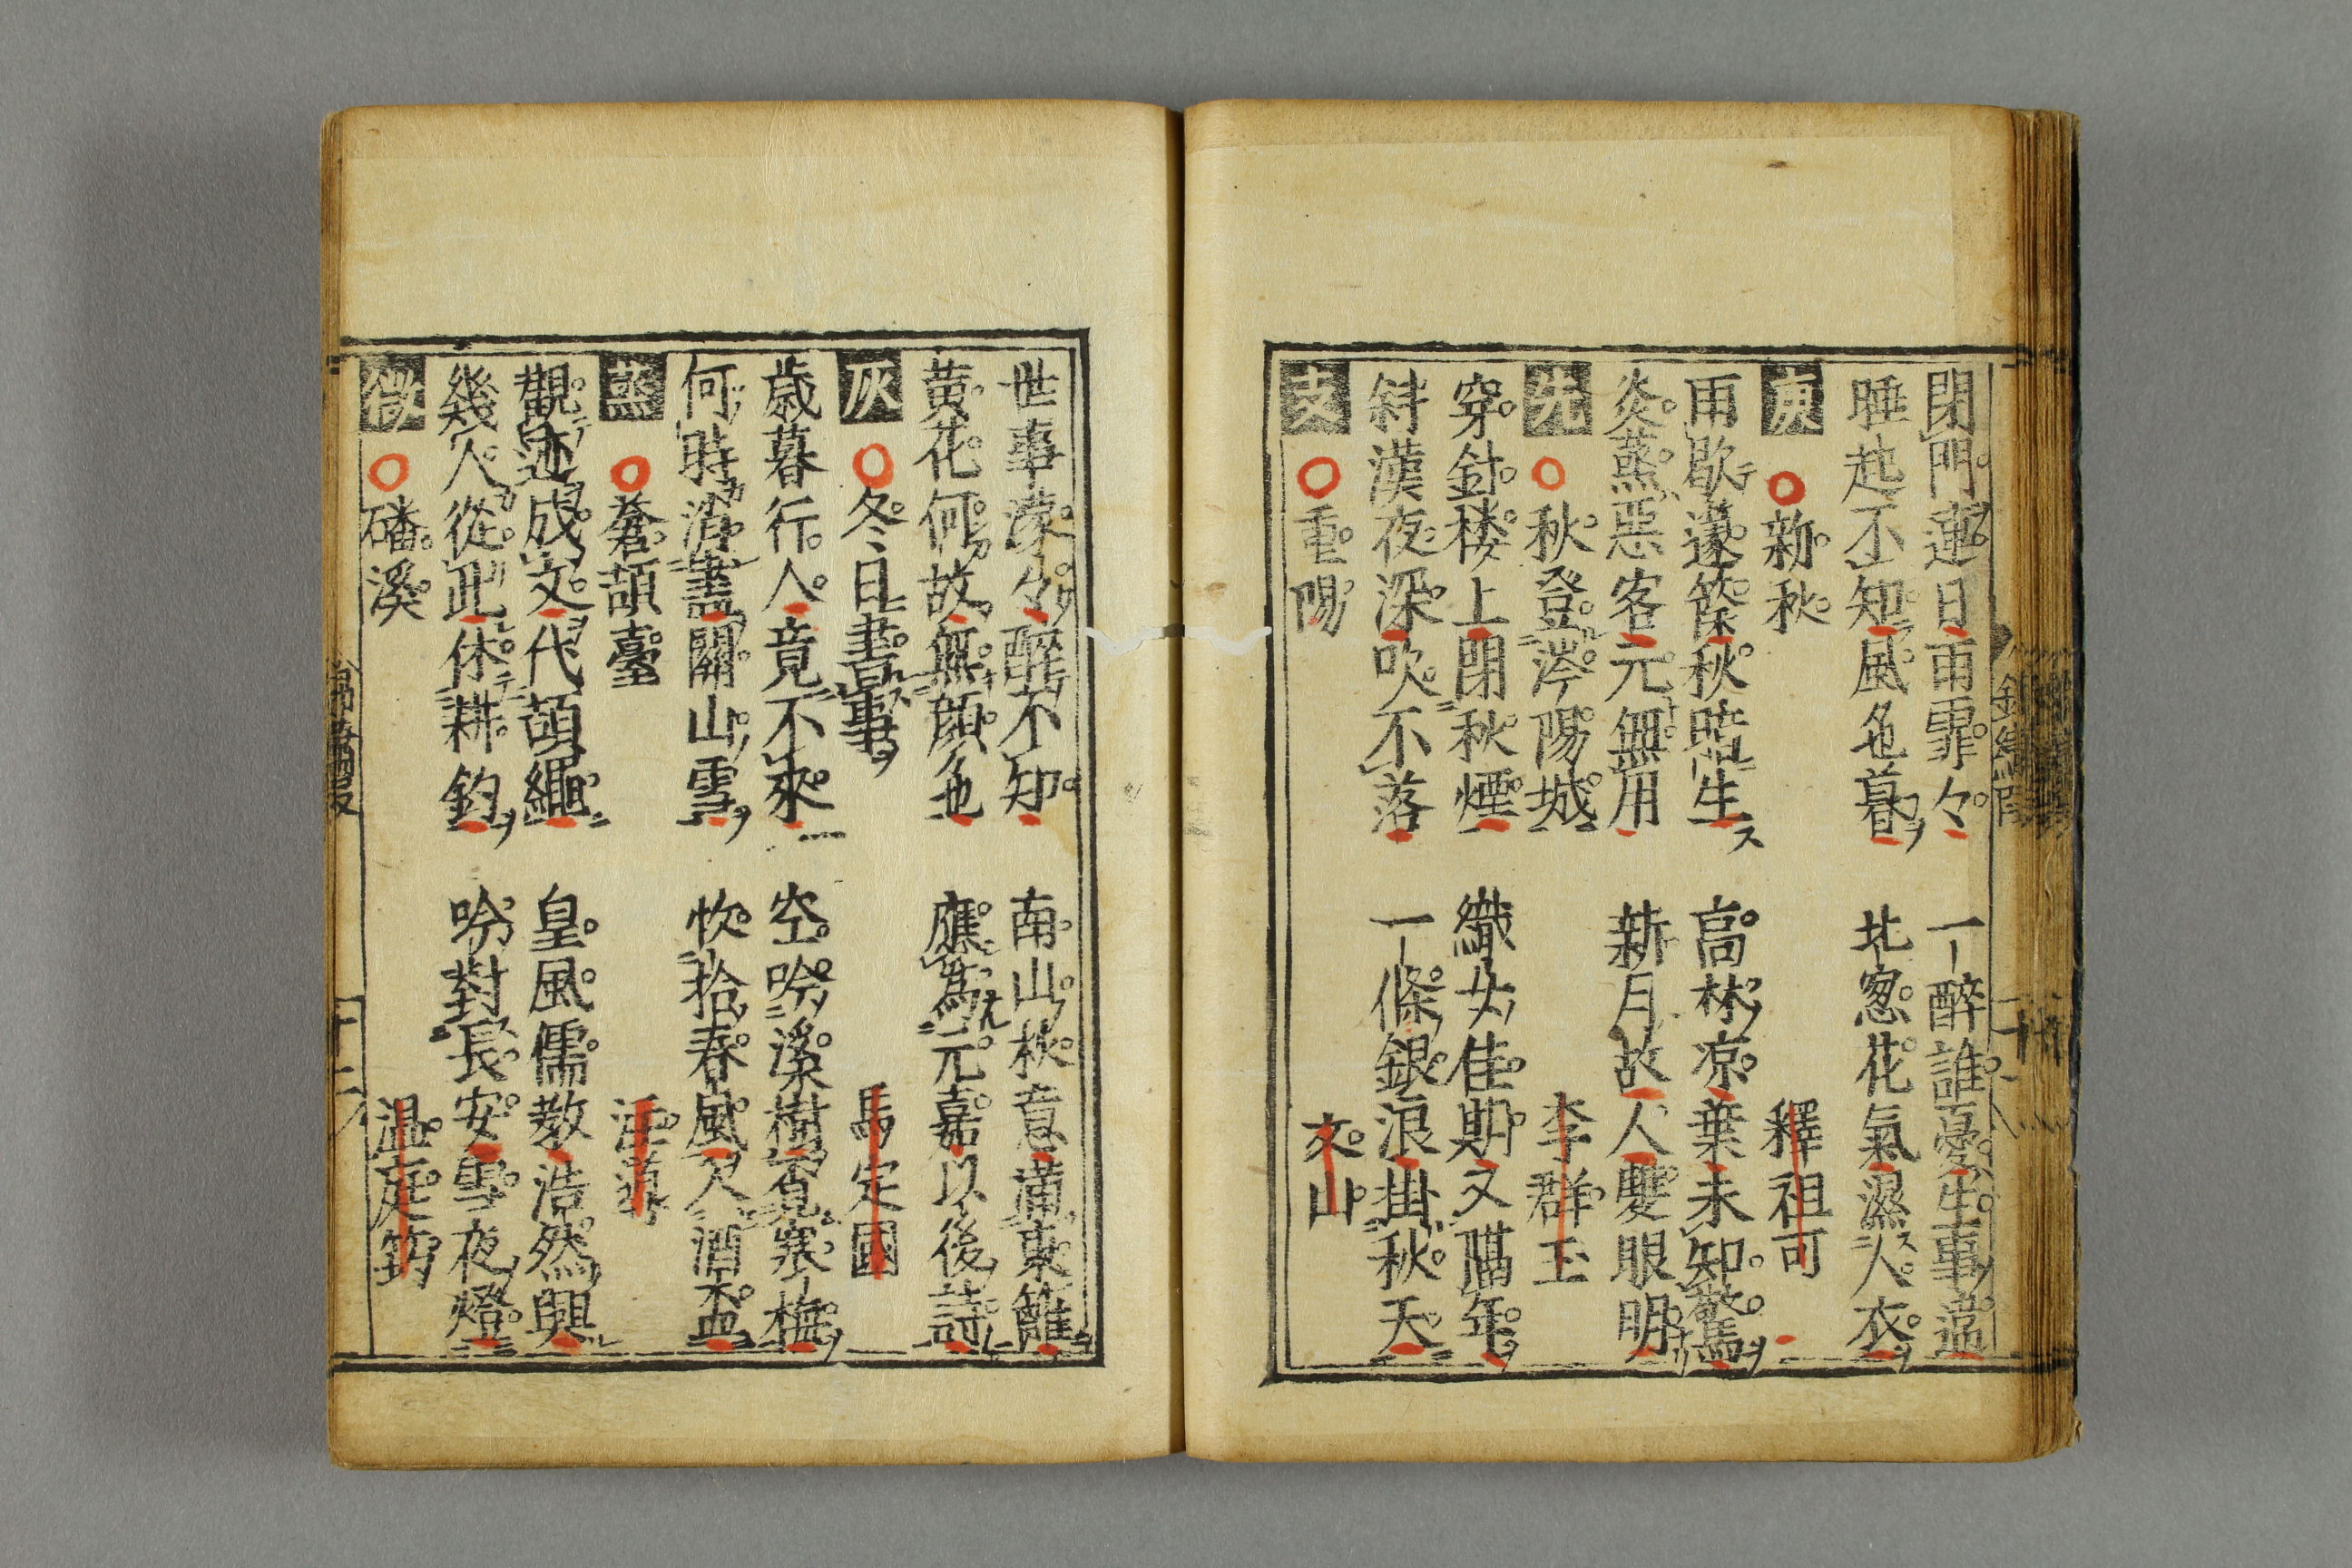 閉門連日雨霏々 一醉誰憂生事違
睡起不知風色暮 北窓花氣濕人衣
庚 新秋 釋祖可
雨歇蓬篨秋暗生 高林凉葉未知驚
炎蒸惡客元無用 新月故人雙眼明
先 秋登涔陽城 李群玉
穿針楼上閉秋煙 織女佳期又隔年
斜漢夜深吹不落 一條銀浪掛秋天
支 重陽 文山
世事濛々醉不知 南山秋意滿東籬
黄花何故無顔色 應爲元嘉以後詩
灰 冬日書事 馬定國
歳暮行人竟不來 空吟溪樹覓寒梅
何時消盡關山雪 收拾春風入酒盃
蒸 蒼頡臺 汪
觀迹成文代頡繩 皇風儒教浩然興
幾人從此休耕釣 吟對長安雪夜燈
微 磻溪 温庭筠